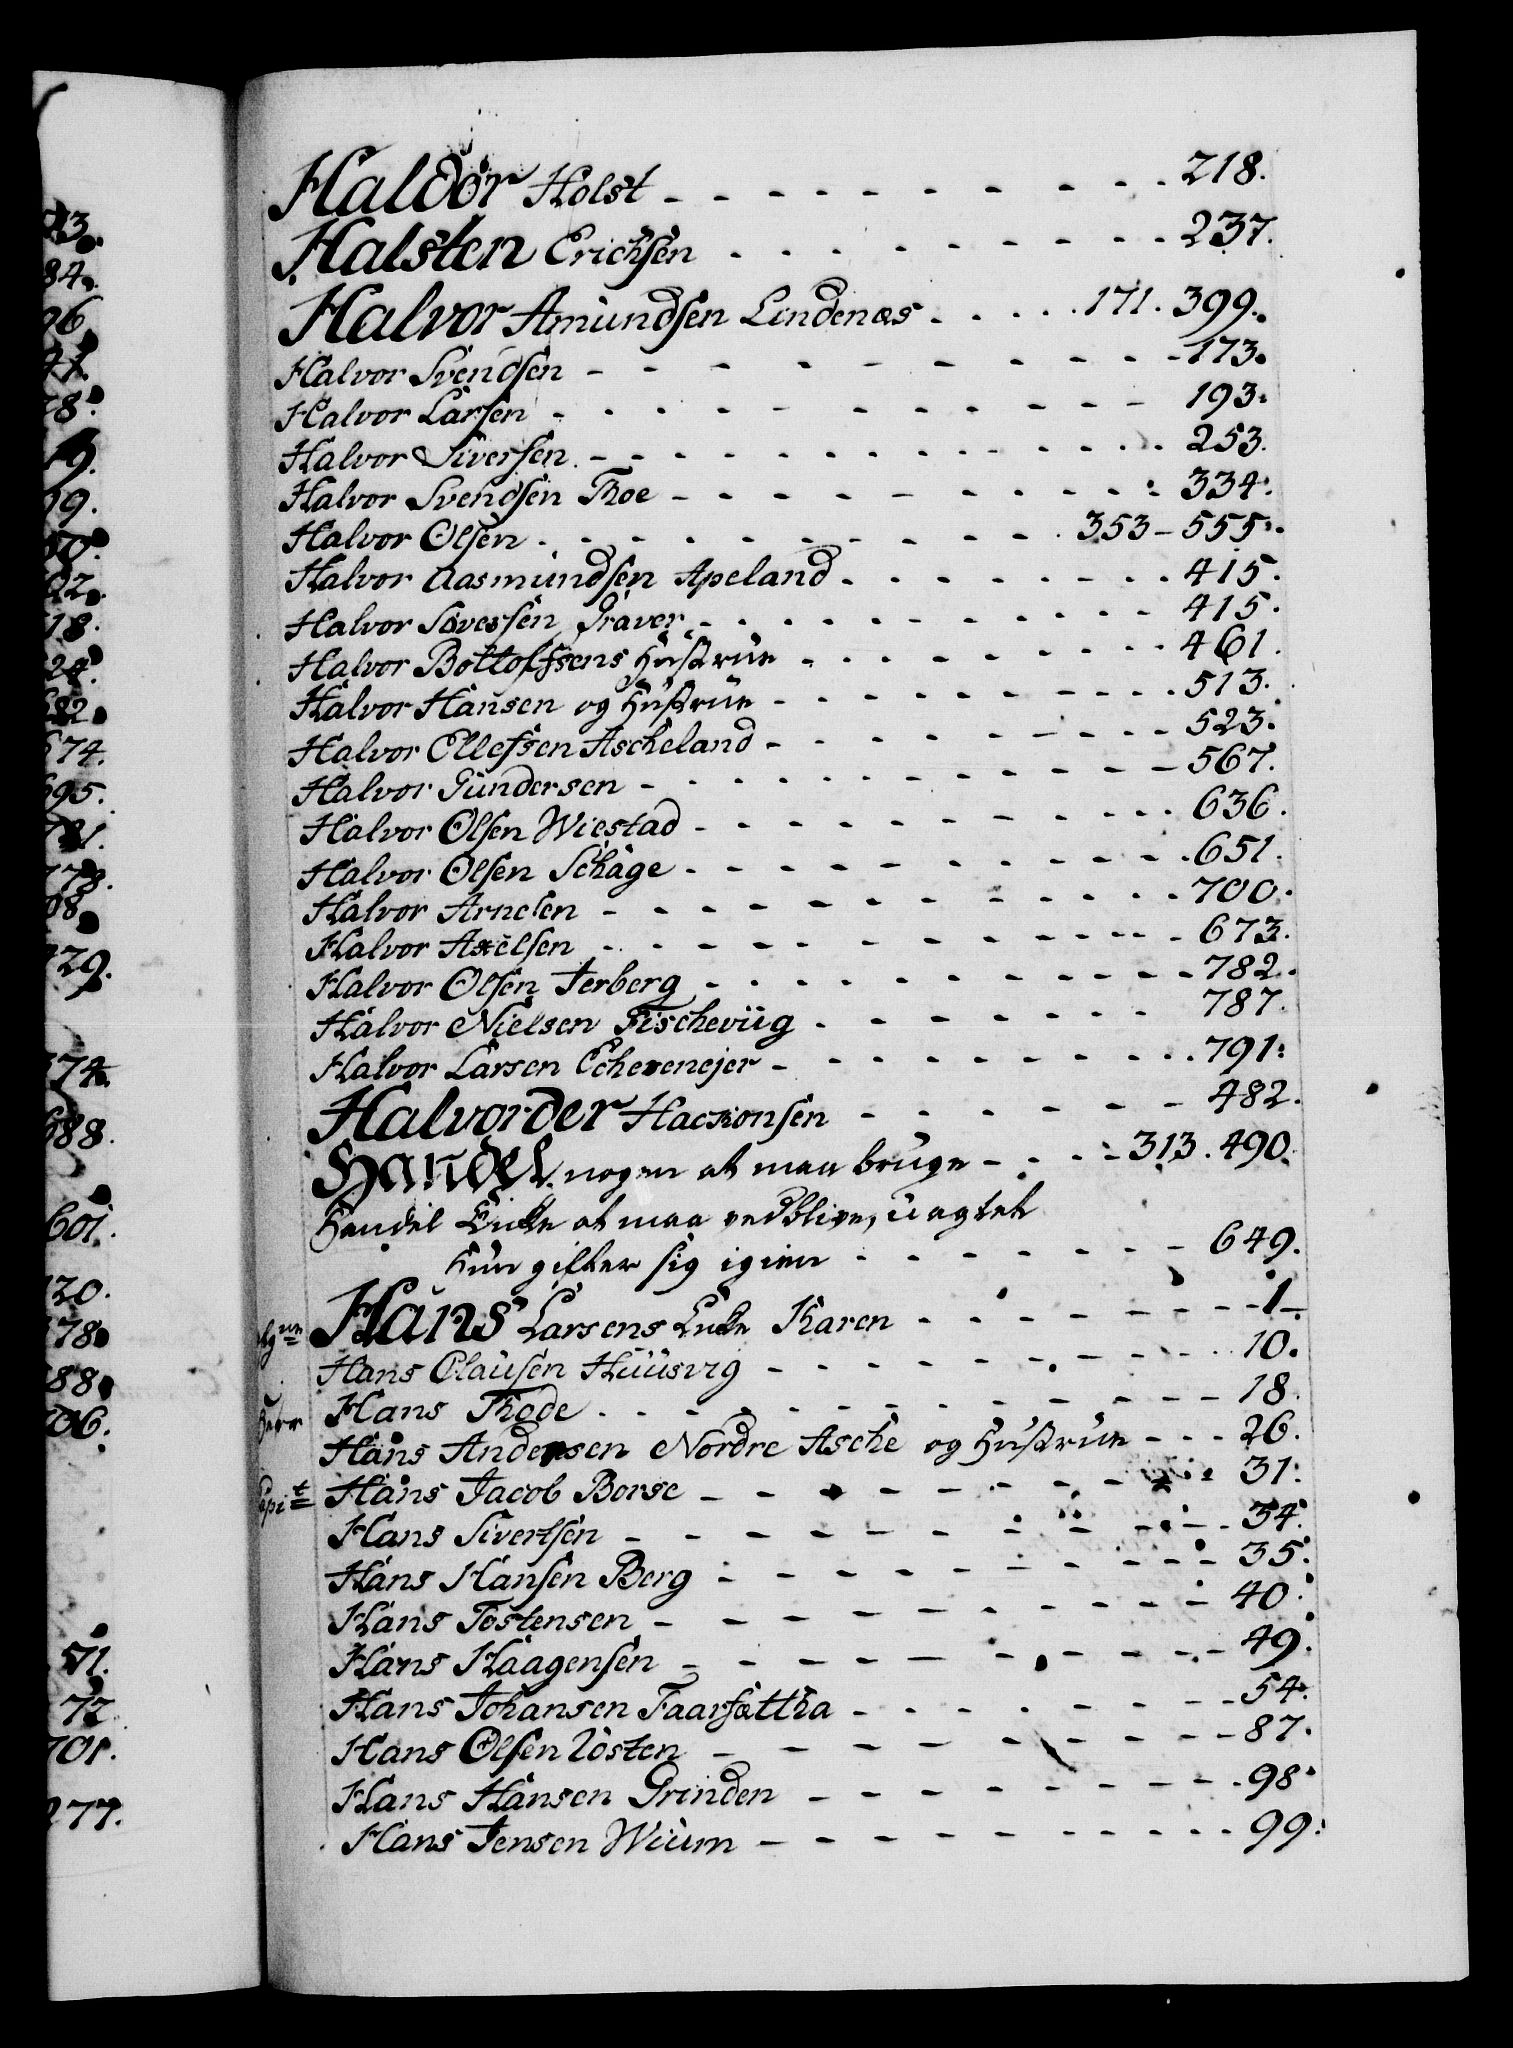 Haldor Holst - - - - - - - - - - - 218.
Halsten Erichsen - - - - - - - - - 237.
Halvor Amundsen Lindenæs - - - - 171. 399.
Halvor Svendsen - - - - - - - - - - 173.
Halvor Larsen - - - - - - - - - - - 193.
Halvor Siversen - - - - - - - - - - 253.
Halvor Svendsen Thoe - - - - - - - - 334.
Halvor Olsen - - - - - - - - - - 353 - 555.
Halvor Aasmundsen Apeland - - - - - - 415.
Halvor Sivessen Græver - - - - - - - - 415.
Halvor Bottolfsens Hustrue - - - - - - 461.
Halvor Hansen og Hustrue - - - - - - - 513.
Halvor Ellefsen Ascheland - - - - - - - 523.
Halvor Gundersen - - - - - - - - - - 567.
Halvor Olsen Wiestad - - - - - - - - - 636.
Halvor Olsen Schage - - - - - - - - - 651.
Halvor Arnesen - - - - - - - - - - - 700.
Halvor Axelsen - - - - - - - - - - - 673.
Halvor Olsen Terberg - - - - - - - - - 782.
Halvor Nielsen Fischeviig - - - - - - - 787.
Halvor Larsen Echerenejer - - - - - - - 791.
Halvorder Hackonsen - - - - - - - 482.
Handel nogen at maa bruge - - - - 313. 490.
Handel Enke at maa vedblive, uagtet
hun gifter sig igien - - - - - - - 649.
Hans Larsens Enke Karen - - - - - - - 1.
Hans Clausen Huusvig - - - - - - - - 10.
Herr Hans Thode - - - - - - - - - - 18.
Hans Andersen Nordre Asche og Hustrue - - - 26.
Capit Hans Jacob Borse - - - - - - - - 31.
Hans Sivertsen - - - - - - - - - - 34.
Hans Hansen Berg - - - - - - - - - 35.
Hans Tostensen - - - - - - - - - - 40.
Hans Haagensen - - - - - - - - - - 49.
Hans Johansen Faarsættha - - - - - - 54.
Hans Olsen Tosten - - - - - - - - - 87.
Hans Hansen Grinden - - - - - - - - 98.
Hans Jensen Wium - - - - - - - - - 99.